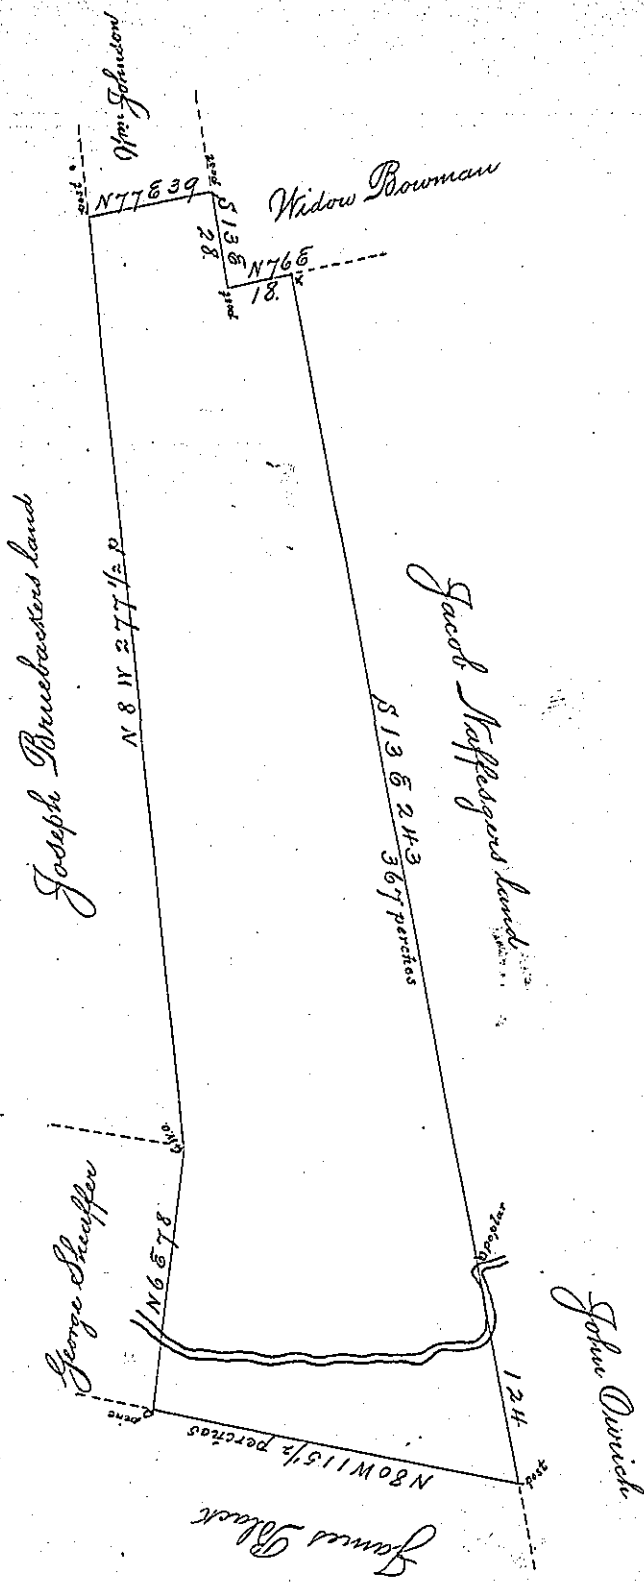 Wm Johnson
post
N77E39
post
S13E
28.
Widow Bowman
N76E
18.
post
x
Joseph Bruebackers land
N 8 W 277 1/2 p
Jacob Naffesgers land
S 13 E 243
367 perches
George Sheaffer
N6E78
poplar
124
John Owrich
pine
N80W115 1/2 perches
post
James Black